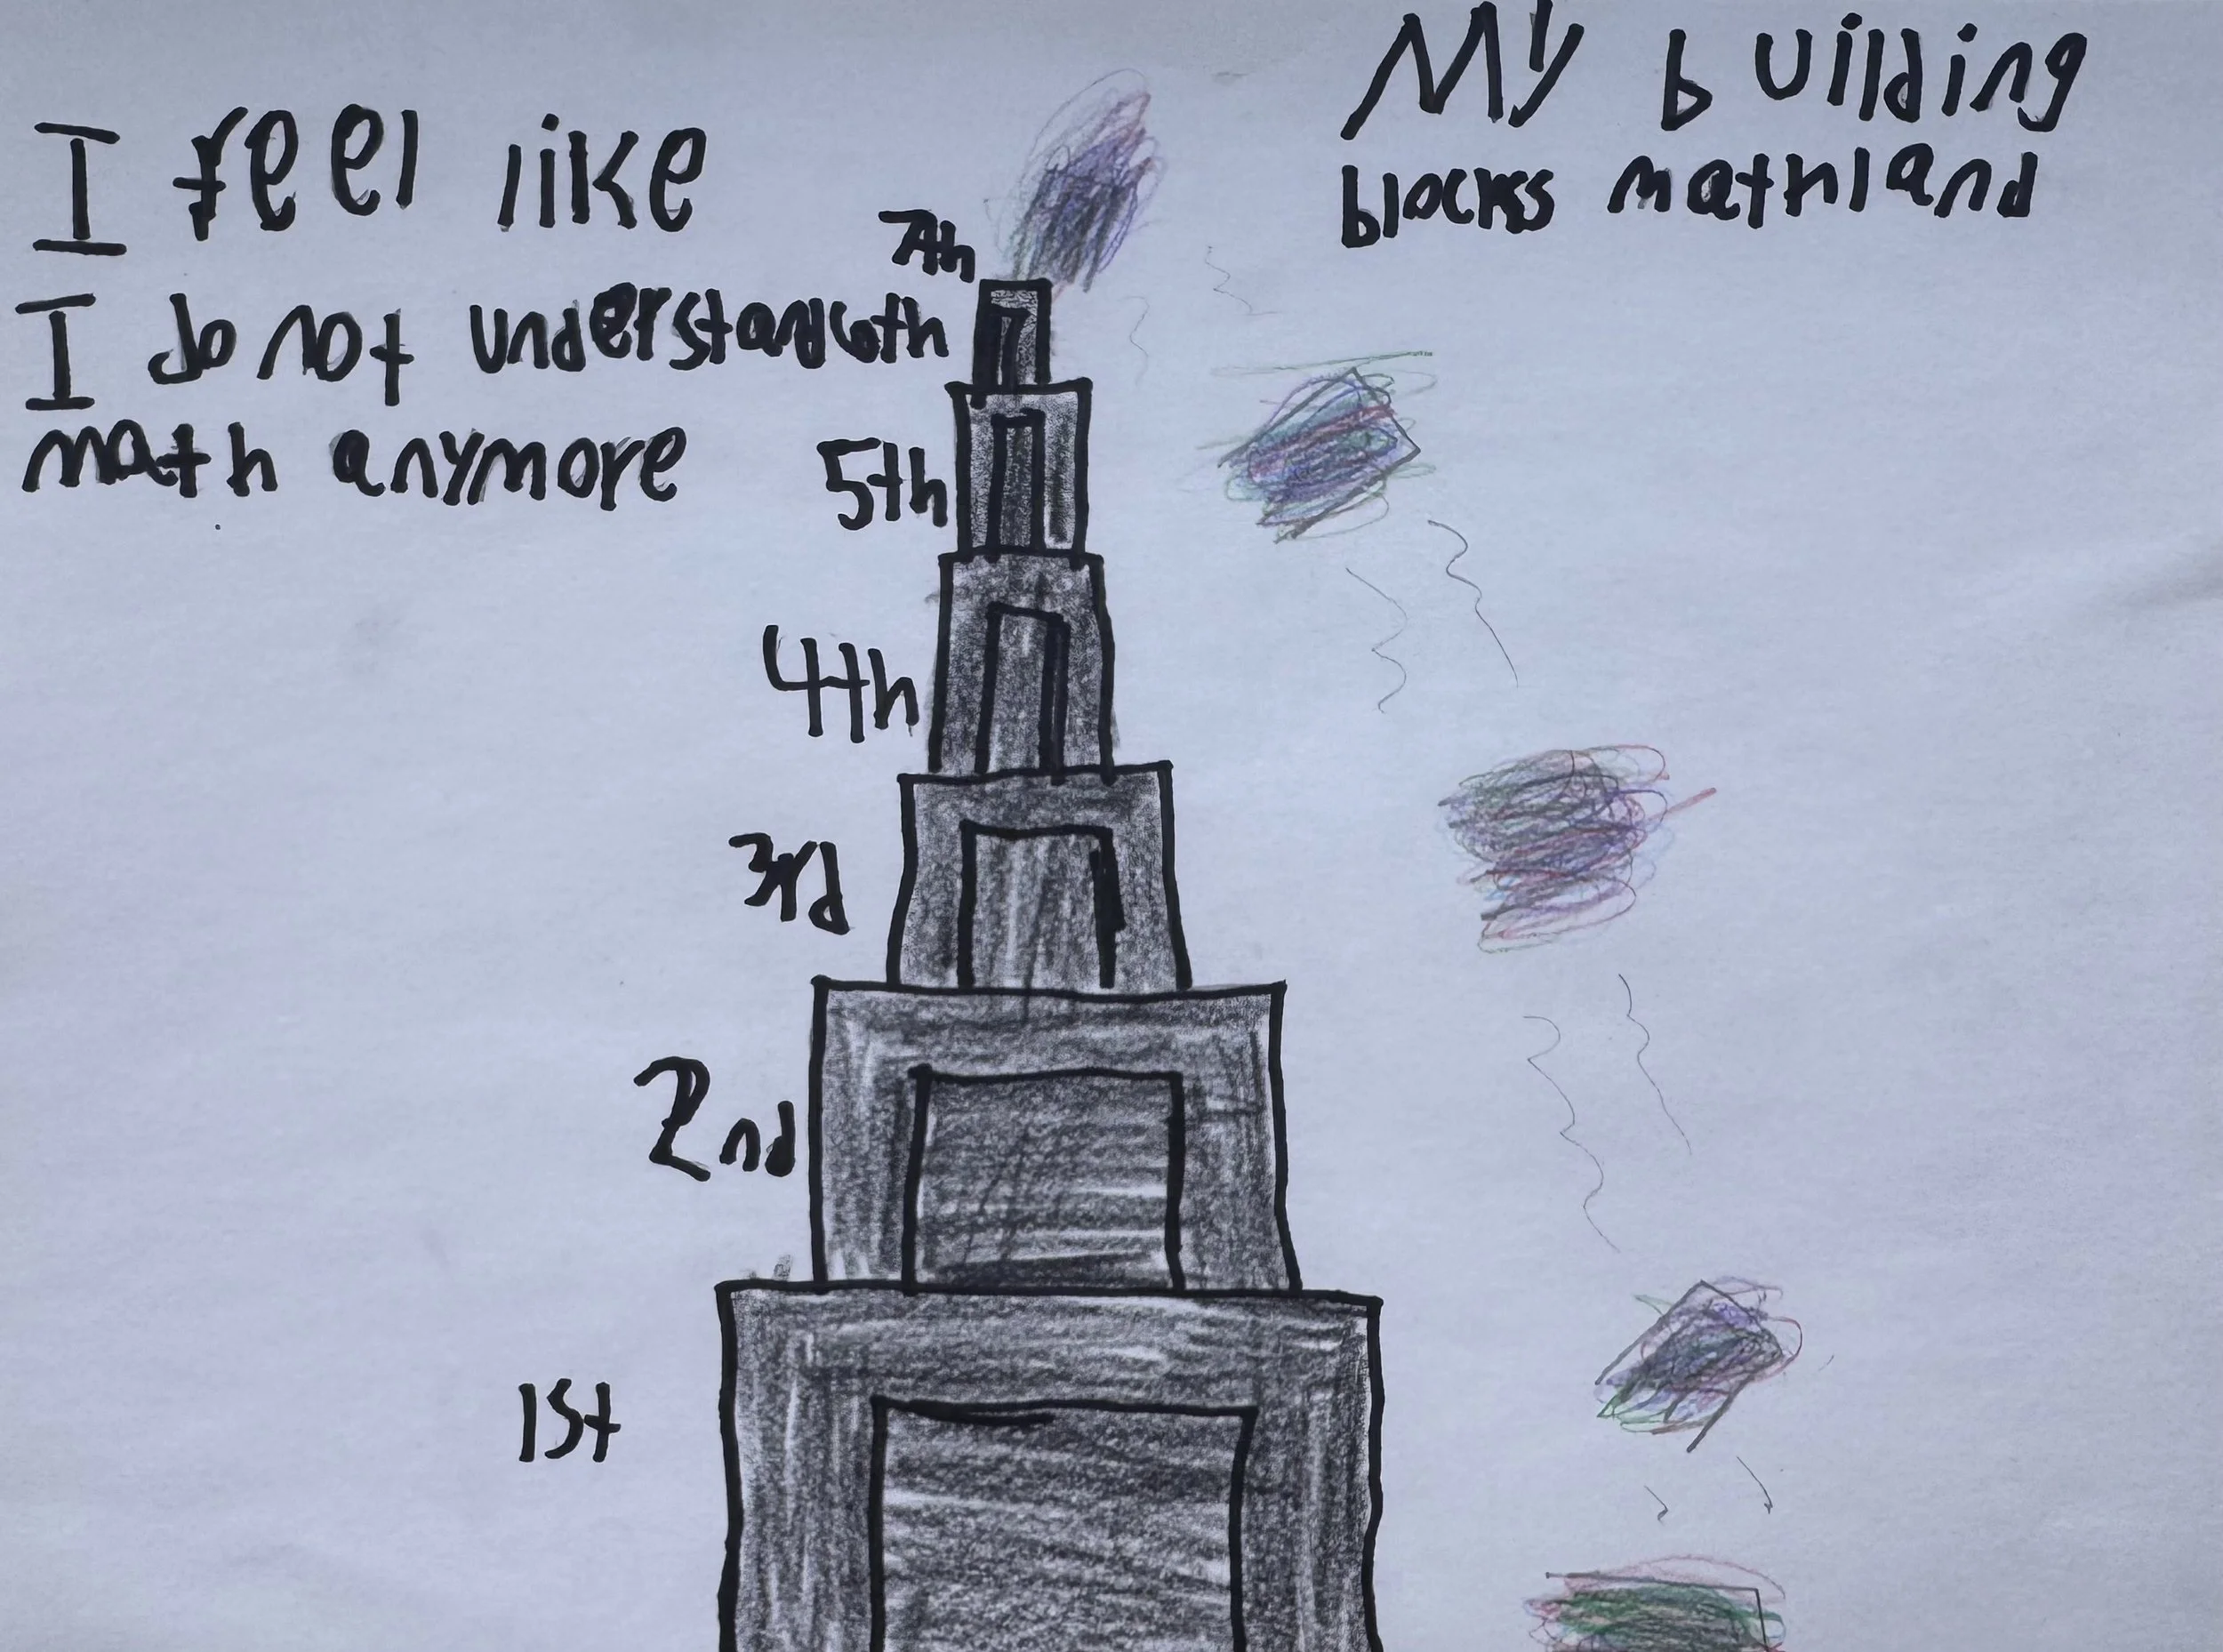 I feel like
I do not understand
math anymore
My building
blocks mathland
7th
6th
5th
4th
3rd
2nd
1st